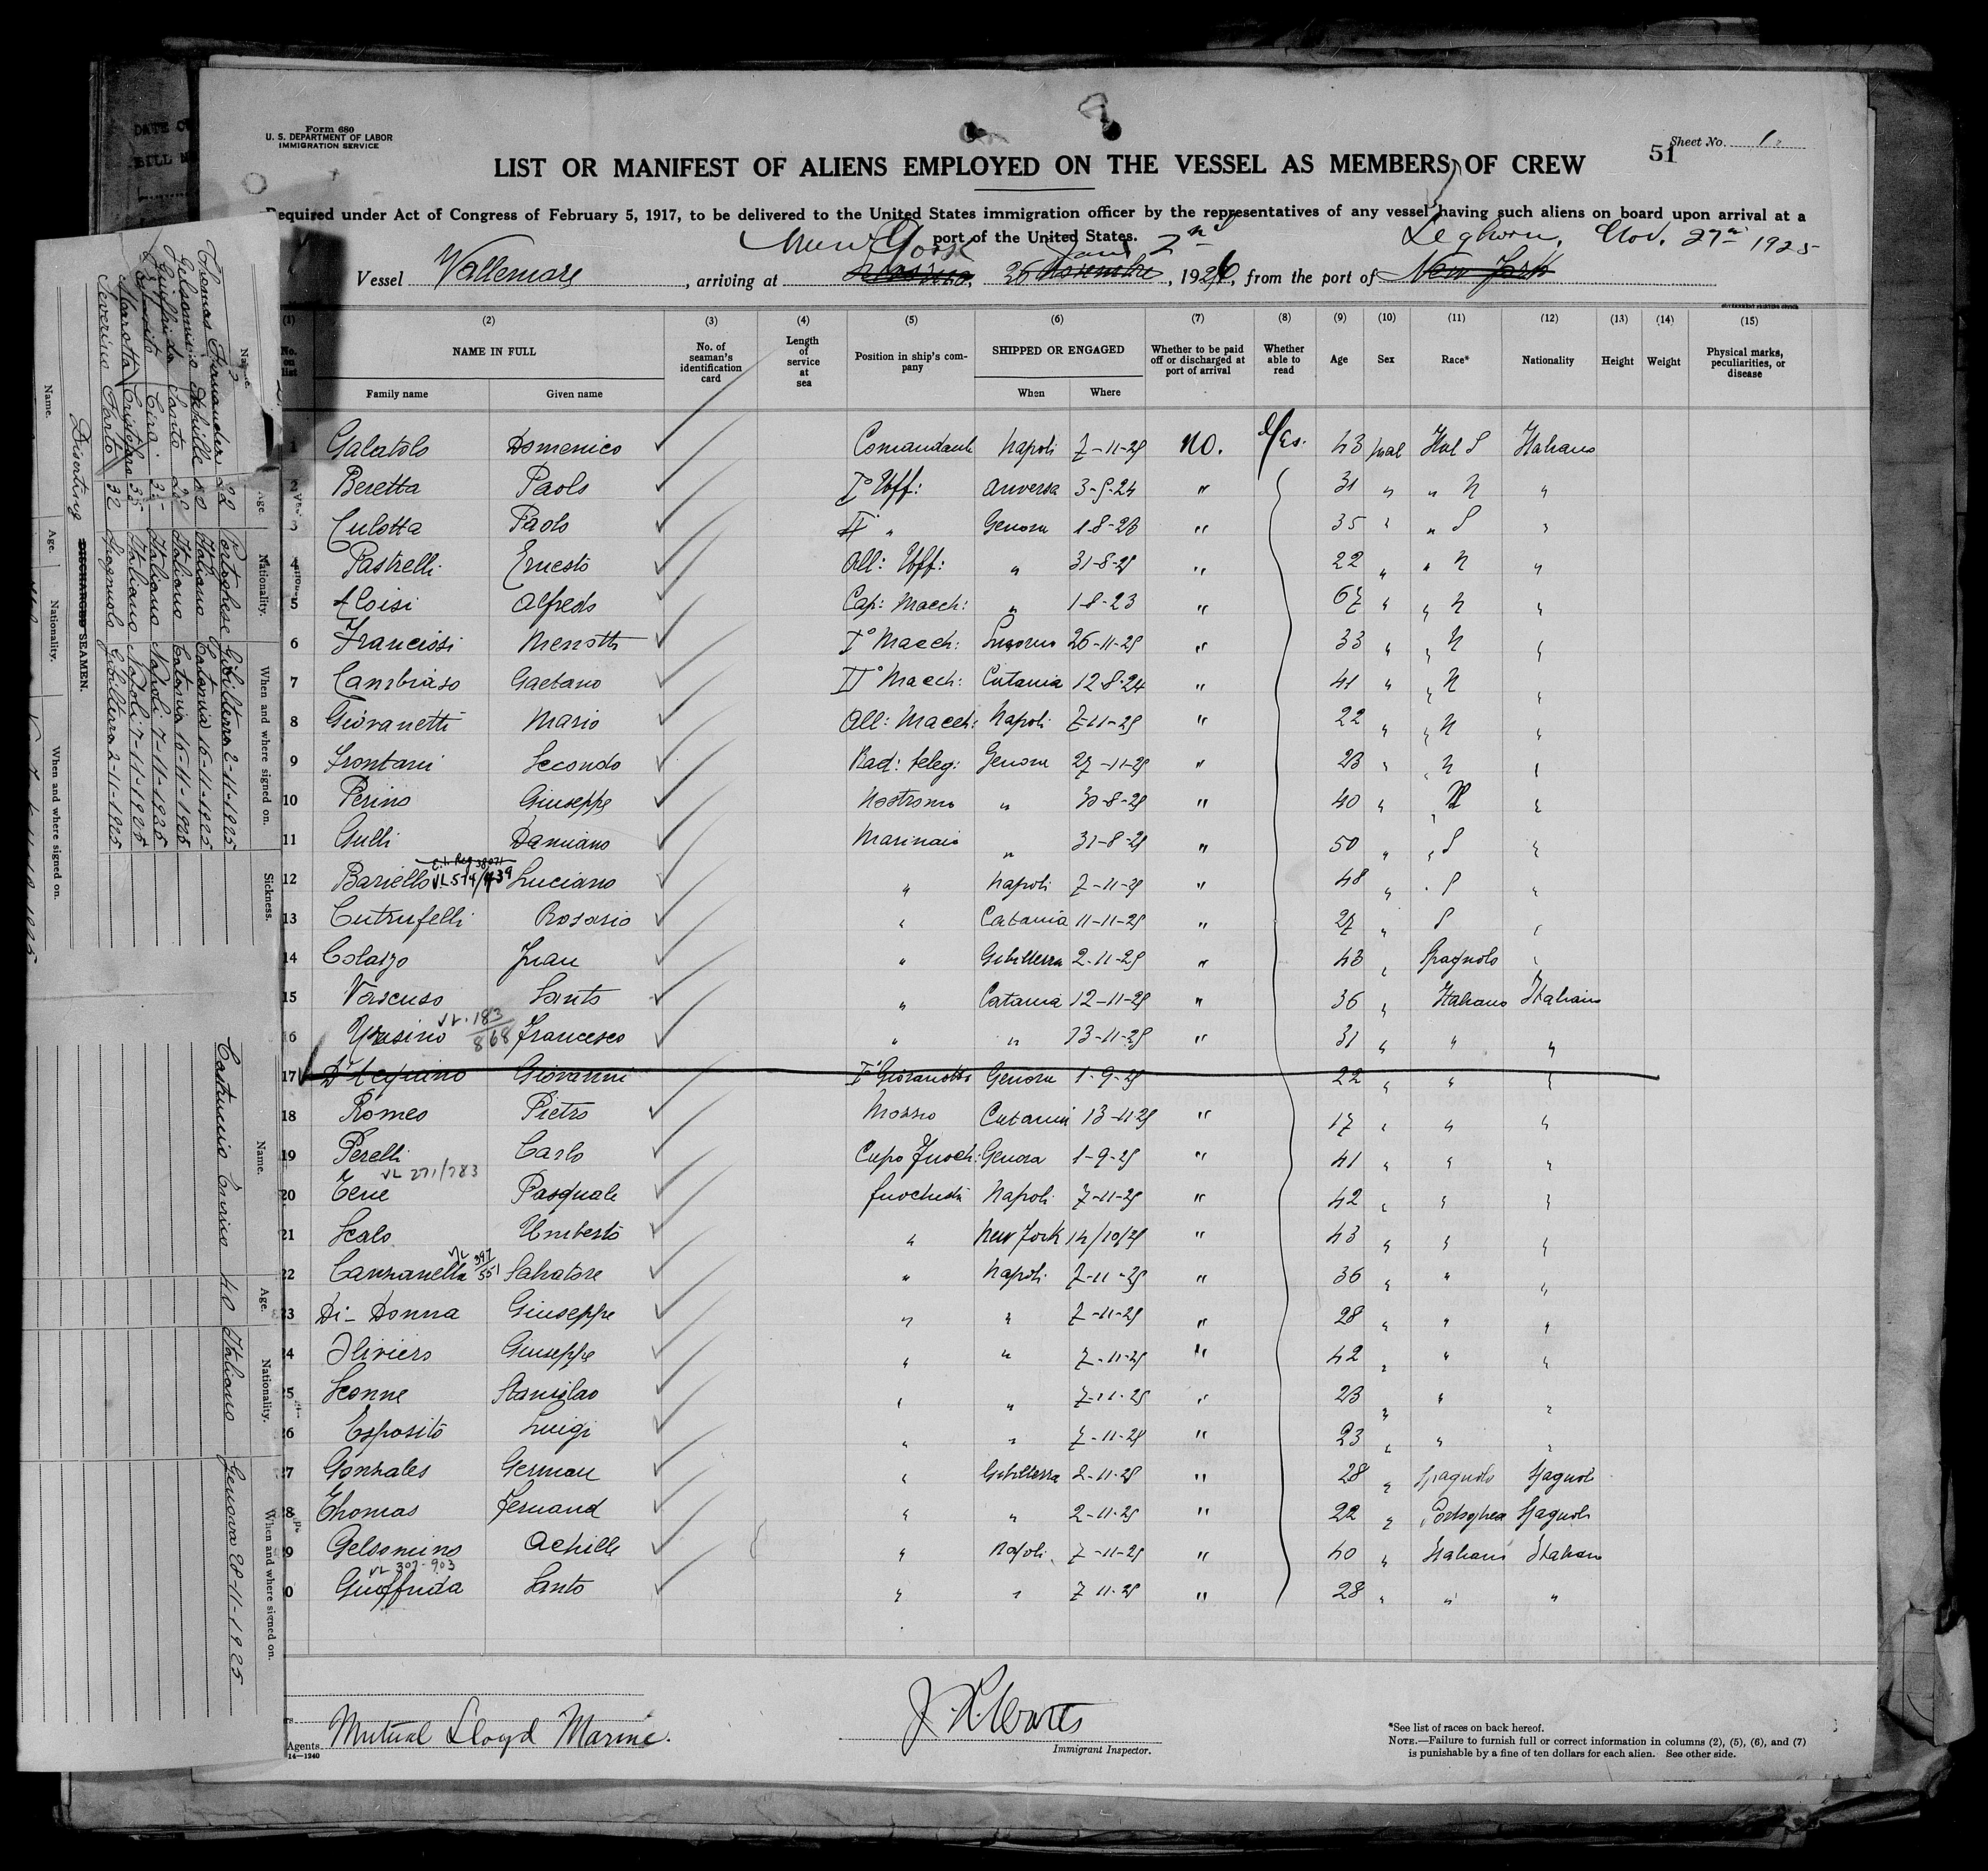 Form 680
U. S. DEPARTMENT OF LABOR
IMMIGRATION SERVICE
Sheet No. 1
51
LIST OR MANIFEST OF ALIENS EMPLOYED ON THE VESSEL AS MEMBERS OF CREW
Required under Act of Congress of February 5, 1917, to be delivered to the United States immigration officer by the representatives of any vessel having such aliens on board upon arrival at a
port of the United States.
New York Jany 2nd Leghorn, Nov. 27th 1925
Vessel Vallemare, arriving at 26 Novembre, 1926, from the port of New York
(1) (2) (3) (4) (5) (6) (7) (8) (9) (10) (11) (12) (13) (14) (15)
No. on list NAME IN FULL No. of seaman's identification card Length of service at sea Position in ship's company SHIPPED OR ENGAGED Whether to be paid off or discharged at port of arrival Whether able to read Age Sex Race* Nationality Height Weight Physical marks, peculiarities, or disease
Family name Given name When Where
1 Galatolo Domenico Comandante Napoli 7-11-25 No. Yes. 43 Mal Ital S Italiano
2 Beretta Paolo I° Uff: Anversa 3-9-24 " 31 " " N "
3 Culotta Paolo II " Genova 1-8-23 " 35 " " S "
4 Pastrelli Ernesto All: Uff: " 31-8-25 " 22 " " N "
5 Aloisi Alfredo Cap: Macch: " 1-8-23 " 67 " " N "
6 Francissi Menotti I° Macch: Livorno 26-11-25 " 33 " " N "
7 Cambiaso Gaetano II° Macch: Catania 12-8-24 " 41 " " N "
8 Giovanetti Mario All: Macch: Napoli 7-11-25 " 22 " " N "
9 Frontani Secondo Rad: teleg: Genova 27-11-25 " 23 " " N "
10 Perino Giuseppe Nostromo " 30-8-25 " 40 " "
11 Gulli Damiano Marinaio " 31-8-25 " 50 " " S "
12 Bariello VL 514/439 Luciano " Napoli 7-11-25 " 48 " " S "
13 Cutrufelli Rosario " Catania 11-11-25 " 27 " S "
14 Colazzo Juan " Gibilterra 2-11-25 " 43 " Spagnolo "
15 Vascuso Santo " Catania 12-11-25 " 36 " Italiano Italiano
16 VL. 183/868 Francesco " " 13-11-25 " 31 " " "
17 D'Aquino Giovanni I° Giovanotto Genova 1-9-25 22 " " "
18 Romeo Pietro Mozzo Catania 13-11-25 " 17 " " "
19 Perelli Carlo Capo Fuoch: Genova 1-9-25 " 41 " " "
20 VL 271/783 Pasquale fuochista Napoli 7-11-25 " 42 " " "
21 Scalo Umberto " New York 14/10/25 " 43 " " "
22 Canzanella VL 397/551 Salvatore " Napoli 7-11-25 " 36 " " "
23 Di-Donna Giuseppe " " 7-11-25 " 28 " " "
24 Oliviero Giuseppe " " 7-11-25 " 42 " " "
25 Scanne Stanislao " " 7-11-25 " 23 " " "
26 Esposito Luigi " " 7-11-25 " 23 " " "
27 Gonzales German " Gibilterra 2-11-25 " 28 " Spagnolo Spagnolo
28 Thomas Fernand " " 2-11-25 " 22 " Portoghese Spagnolo
29 Gelsomino Achille " Napoli 7-11-25 " 40 " Italiano Italiano
30 Giuffrida VL 307-903 Santo " " 7 11-25 " 28 " " "
Agents Mutual Lloyd Marine.
14—1240
Immigrant Inspector.
*See list of races on back hereof.
NOTE.—Failure to furnish full or correct information in columns (2), (5), (6), and (7)
is punishable by a fine of ten dollars for each alien. See other side.
Name. Age. Nationality. When and where signed on. Sickness.
Thomas Fernander 22 Portoghese Gibilterra 2-11-1925
Gelsomino Achille 40 Italiano Catania 16-11-1925
Giuffrida Santo 28 Italiano Catania 16-11-1925
Esposito Ciro 35 Italiano Napoli 7-11-1925
Marotta Cristofaro 35 Italiano Napoli 7-11-1925
Severino 32 Spagnuolo Gibilterra 2-11-1925
Diserting DISCHARGED SEAMEN.
Name. Age. Nationality. When and where signed on.
Name. Age. Nationality. When and where signed on.
Castruccio Enrico 40 Italiano Genova 28-11-1925